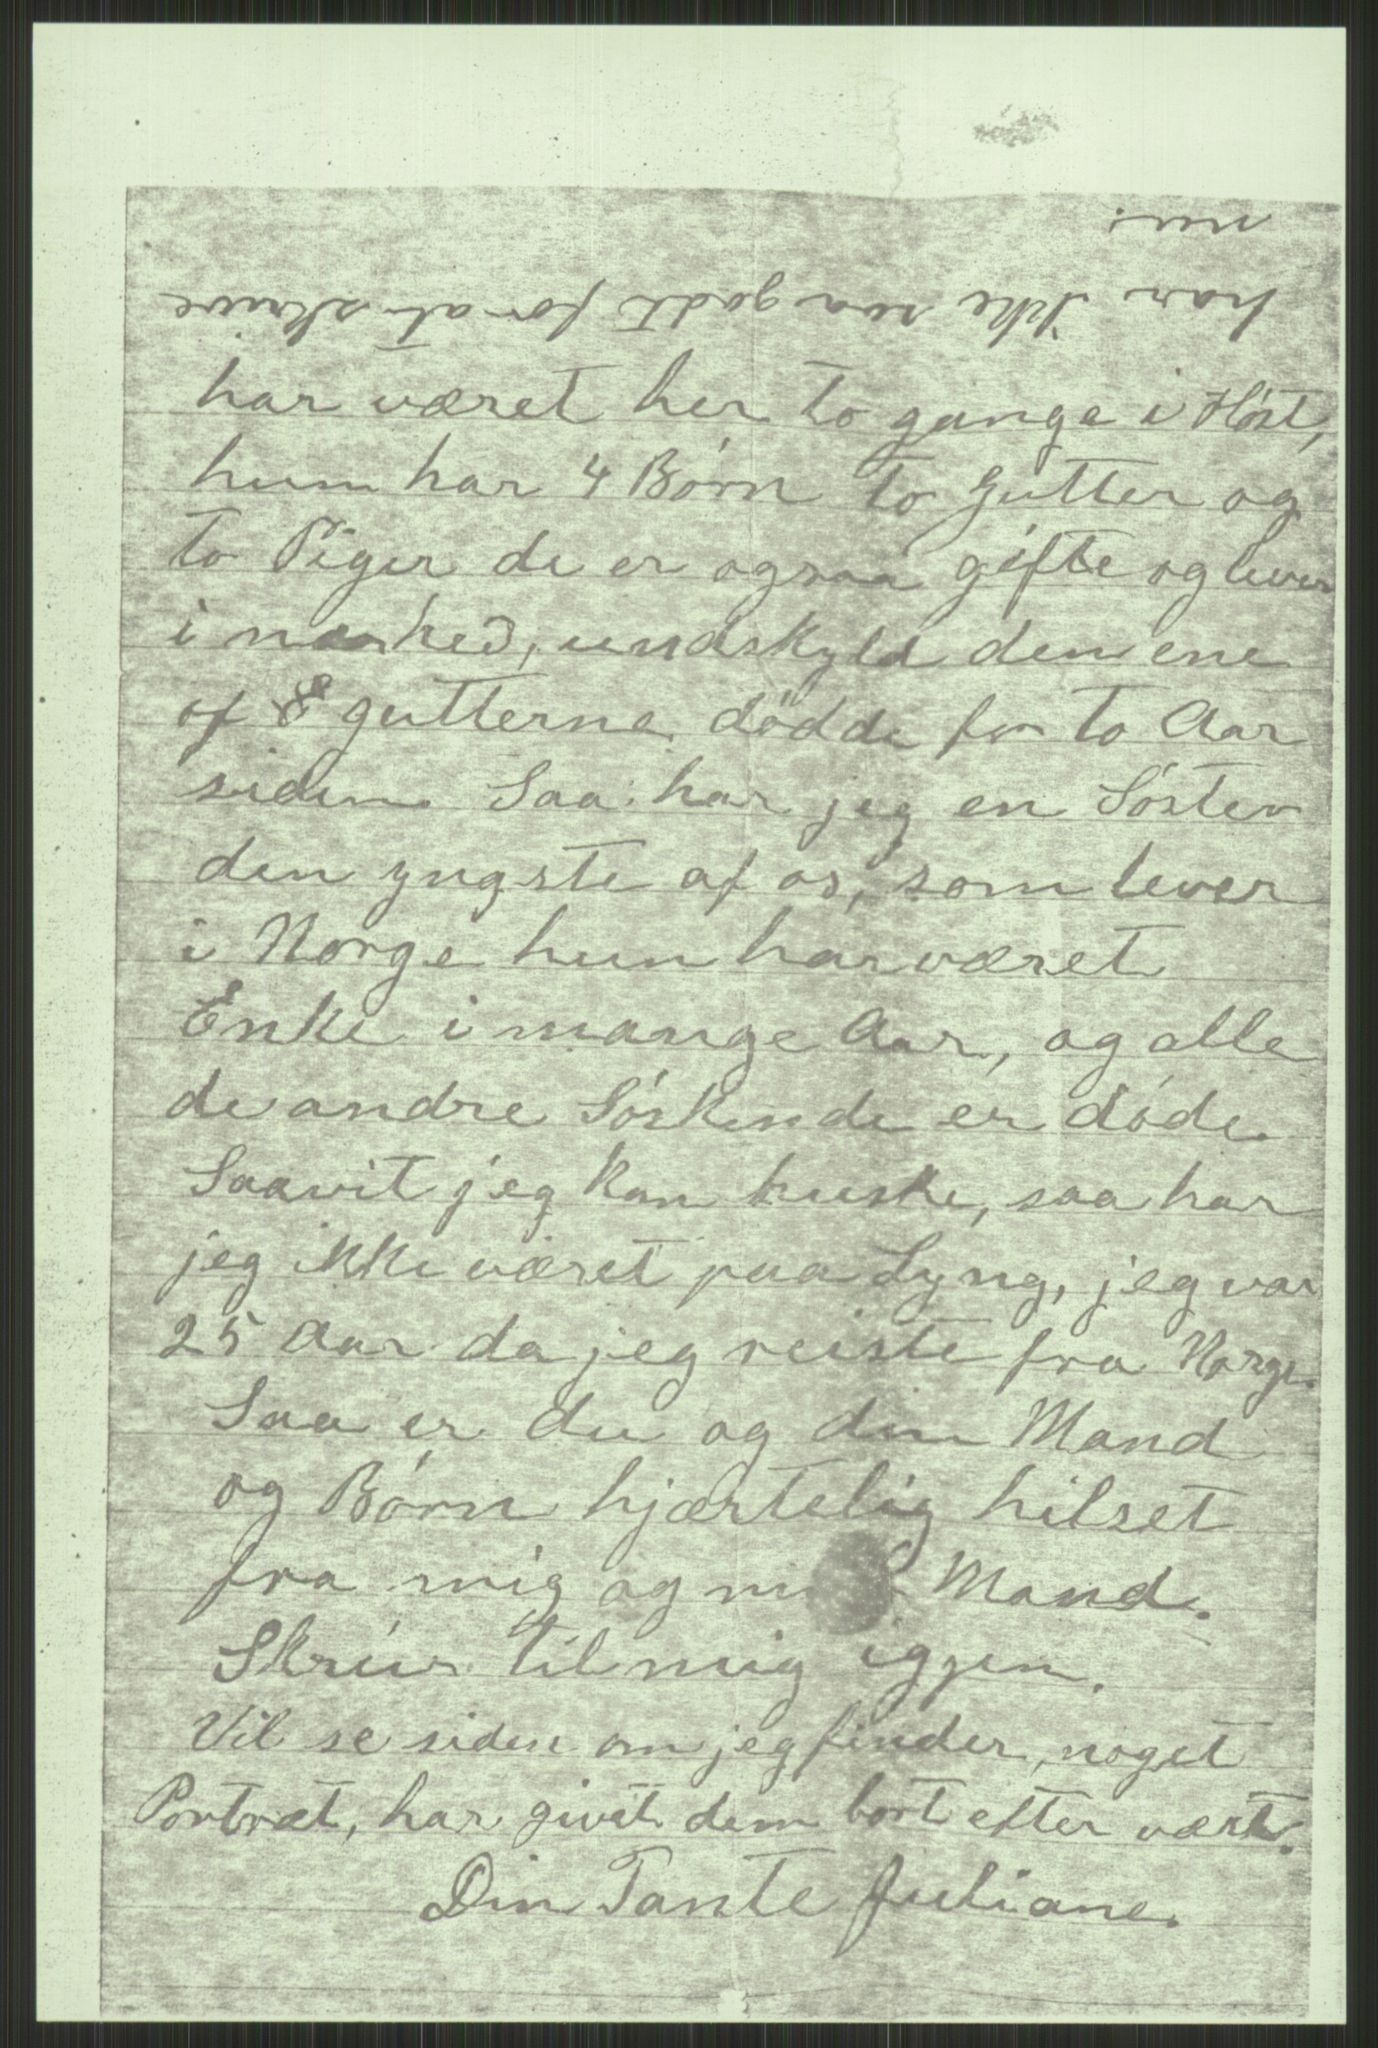 har ikke saa godt for at skrive
nu.
har været her to gange i Høst,
hun har 4 Børn to Gutter og
to Piger de er ogsaa gifte og lever
i nærhed, undskyld den ene
af gutterne dødde for to Aar
siden. Saa har jeg en Søster
den yngste af os, som lever
i Norge hun har været
Enke i mange Aar, og alle
de andre Søskende er døde.
Saavit jeg kan huske, saa har
jeg ikke været paa Lyng, jeg var
25 Aar da jeg reiste fra Norge.
Saa er du og din Mand
og Børn hjærtelig hilset
fra mig og Mand.
Skriv til mig igjen.
Vil se siden om jeg finder noget
Portræt, har givet dem bort efter vært.
Din Tante Juliane.